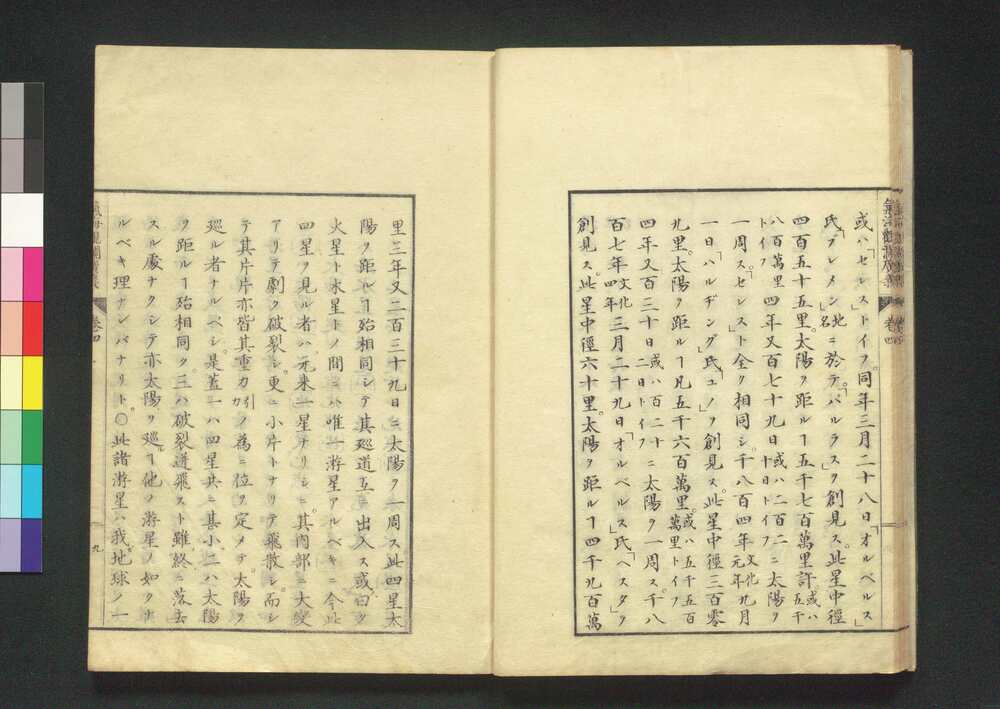 或ハ「セレス」トイフ。同年三月二十八日「オルベルス」
氏「ブレメン」地名ニ於テ。「パルラス」ヲ創見ス。此星中徑
四百五十五里。太陽ヲ距ルヿ五千七百萬里許或ハ五千
八百萬里トイフ四年又百七十九日或ハ二百二十日トイフニ太陽ヲ
一周ス。「セレス」ト全ク相同シ。千八百四年文化元年九月
一日「ハルヂング」氏「ユノ」ヲ創見ス。此星中徑三百零
九里。太陽ヲ距ルヿ凡五千六百萬里。或ハ五千五百萬里トイフ
四年又百三十日或ハ百二十二日トイフニ太陽ヲ一周ス。千八
百七年文化四年三月二十九日「オルベルス」氏「ヘスタ」ヲ
創見ス。此星中徑六十里。太陽ヲ距ルヿ四千九百萬
里三年又二百三十九日ニ太陽ヲ一周ス此四星太
陽ヲ距ルヿ殆相同シテ其廻道互ニ出入ス或曰ク
火星ト木星トノ間ニハ唯一游星アルベキニ今此
四星ヲ見ル者ハ元來一星ナリシニ其内部ニ大變
アリテ劇ク破裂シ更ニ小片トナリテ飛散シ而シ
テ其片片亦皆其重力引力ノ為ニ位ヲ定メテ太陽ヲ
廻ル者ナルベシ是蓋一ハ四星共ニ甚小二ハ太陽
ヲ距ルヿ殆相同ク三ハ破裂迸飛スト雖終ニ落去
スル處ナクシテ亦太陽ヲ廻ルヿ他ノ游星ノ如クナ
ルベキ理ナレバナリト○此諸游星ハ我地球ノ一
卷四
九